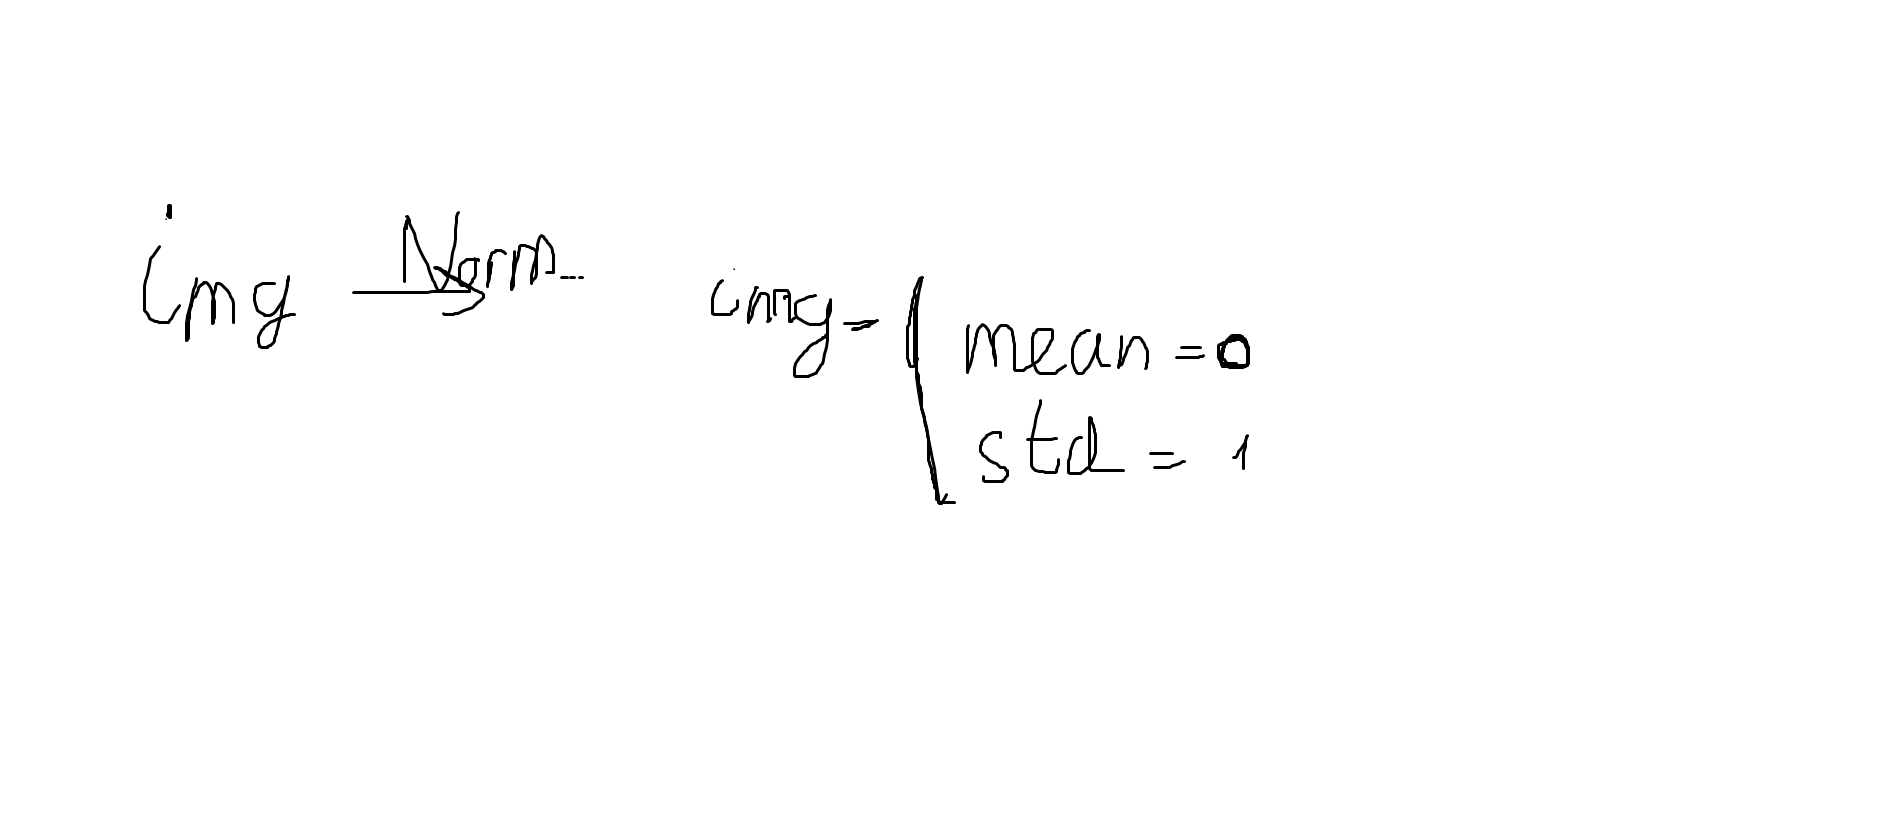 img Norm...
img = mean = 0
std = 1